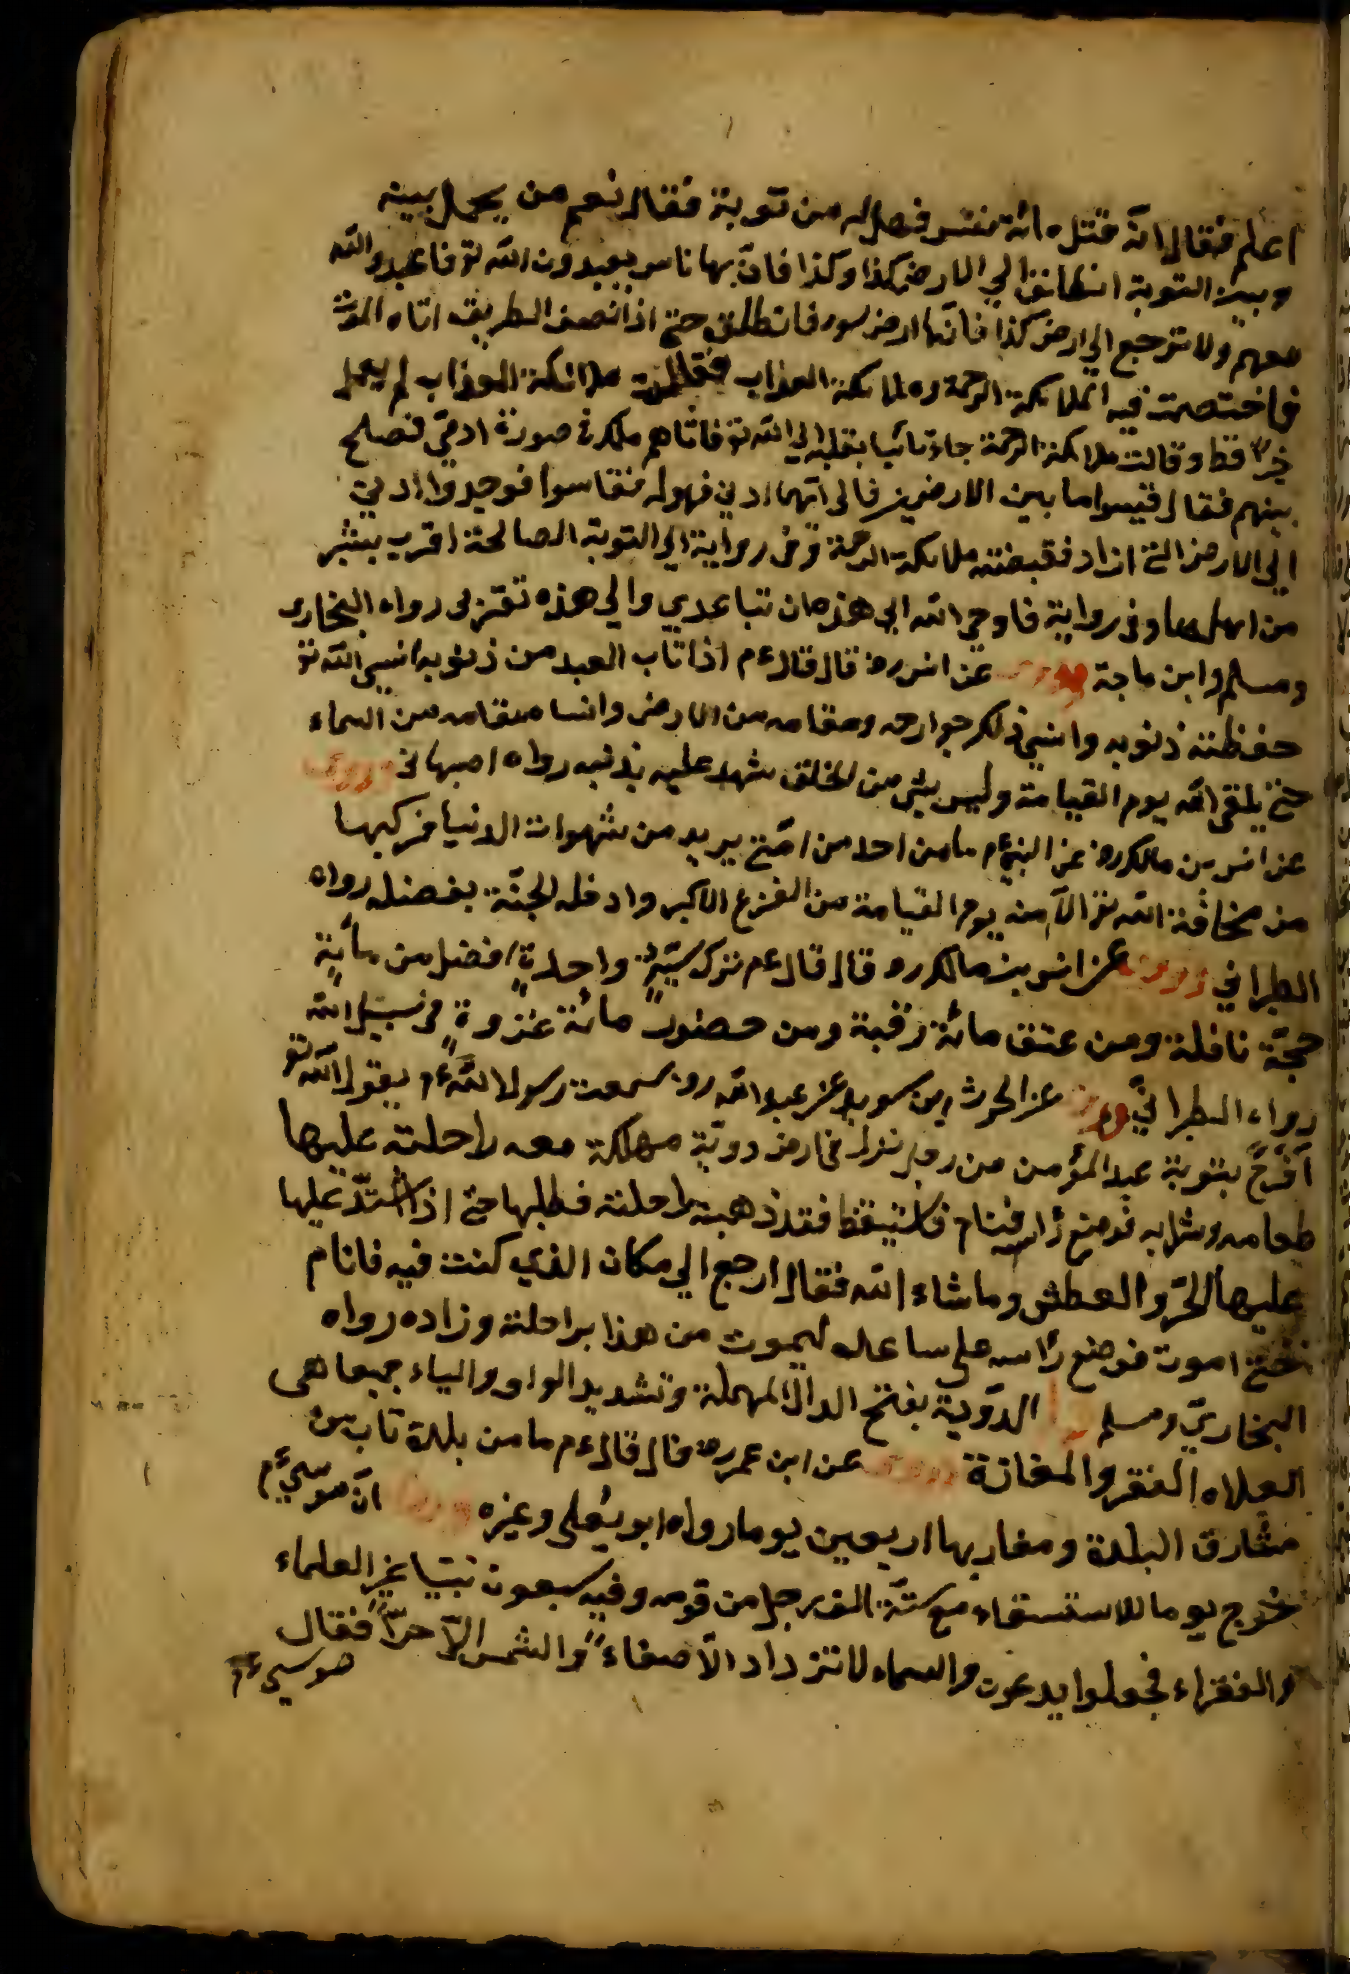 اعلم فقال انه قتل مائة نفس فهل له من توبة فقال نعم من يحول بينه
وبين التوبة انطلق الي الارض كذا وكذا فان بها ناس يعبدون الله تع فاعبد الله
معهم ولا ترجع الي ارض كذا فانها ارض سوء فانطلق حتي اذا نصف الطريق اتاه الموت
فاختصمت فيه الملائكة الرحمة وملائكة العذاب فقالت ملائكة العذاب لم يعمل
خيرا قط وقالت ملائكة الرحمة جاء تائبا بقلبه الي الله تع فاتاهم ملك في صورة ادمي فصلح
بينهم فقال قيسوا ما بين الارضين فالي ايتهما ادني فهو له فقاسوا فوجدوا ادني
الي الارض التي اراد فقبضته ملائكة الرحمة وفي رواية الي التوبة الصالحة اقرب بشبر
من اهلها وفي رواية فاوحي الله الي هذه ان تباعدي والي هذه تقربي رواه البخاري
ومسلم وابن ماجة عن انس رض قال قال ءم اذا تاب العبد من ذنوبه انسي الله تع
حفظته ذنوبه وانسي ذلك جوارحه ومقامه من الارض وانسا مقامه من السماء
حتي يلقي الله يوم القيامة وليس شي من الخلق شهد عليه بذنبه رواه اصبهاني
عن انس بن مالك رض عن النبي ءم ما من احد من امتي يريد من شهوات الدنيا فتركها
من مخافة الله تع الا امنه يوم القيامة من الفزع الاكبر وادخله الجنة بفضله رواه
الطبراني عن انس بن مالك رض قال قال ءم ترك سيئة واحدة افضل من مائة
حجة نافلة ومن عتق مائة رقبة ومن حضور مائة غزوة في سبيل الله
رواه الطبراني عن الحرث ابن سويد عن عبد الله رض سمعت رسول الله ءم يقول الله تع
افرح بتوبة عبد المؤمن من رجل نزل في ارض دوية مهلكة معه راحلته عليها
طعامه وشرابه فوضع رأسه فنام فاستيقظ فقد ذهبت راحلته فطلبها حتي اذا اشتد عليها
عليها الحر والعطش وما شاء الله فقال ارجع الي مكان الذي كنت فيه فانام
حتي اموت فوضع رأسه علي ساعده ليموت من هذا براحلته وزاده رواه
البخاري ومسلم الدوية بفتح الدال المهملة وتشديد الواو والياء جميعا هي
الفلاه القفر والمفازة عن ابن عمر رض قال قال ءم ما من بلدة تاب من
مشارق البلدة ومغاربها اربعين يوما رواه ابو يعلي وغيره ان موسي ءم
خرج يوما للاستسقاء مع ستة الف رجل من قومه وفيه سبعون نبيا غير العلماء
والفقراء فجعلوا يدعون والسماء لا تزداد الا صفاء والشمس الا حرا فقال
موسي ءم